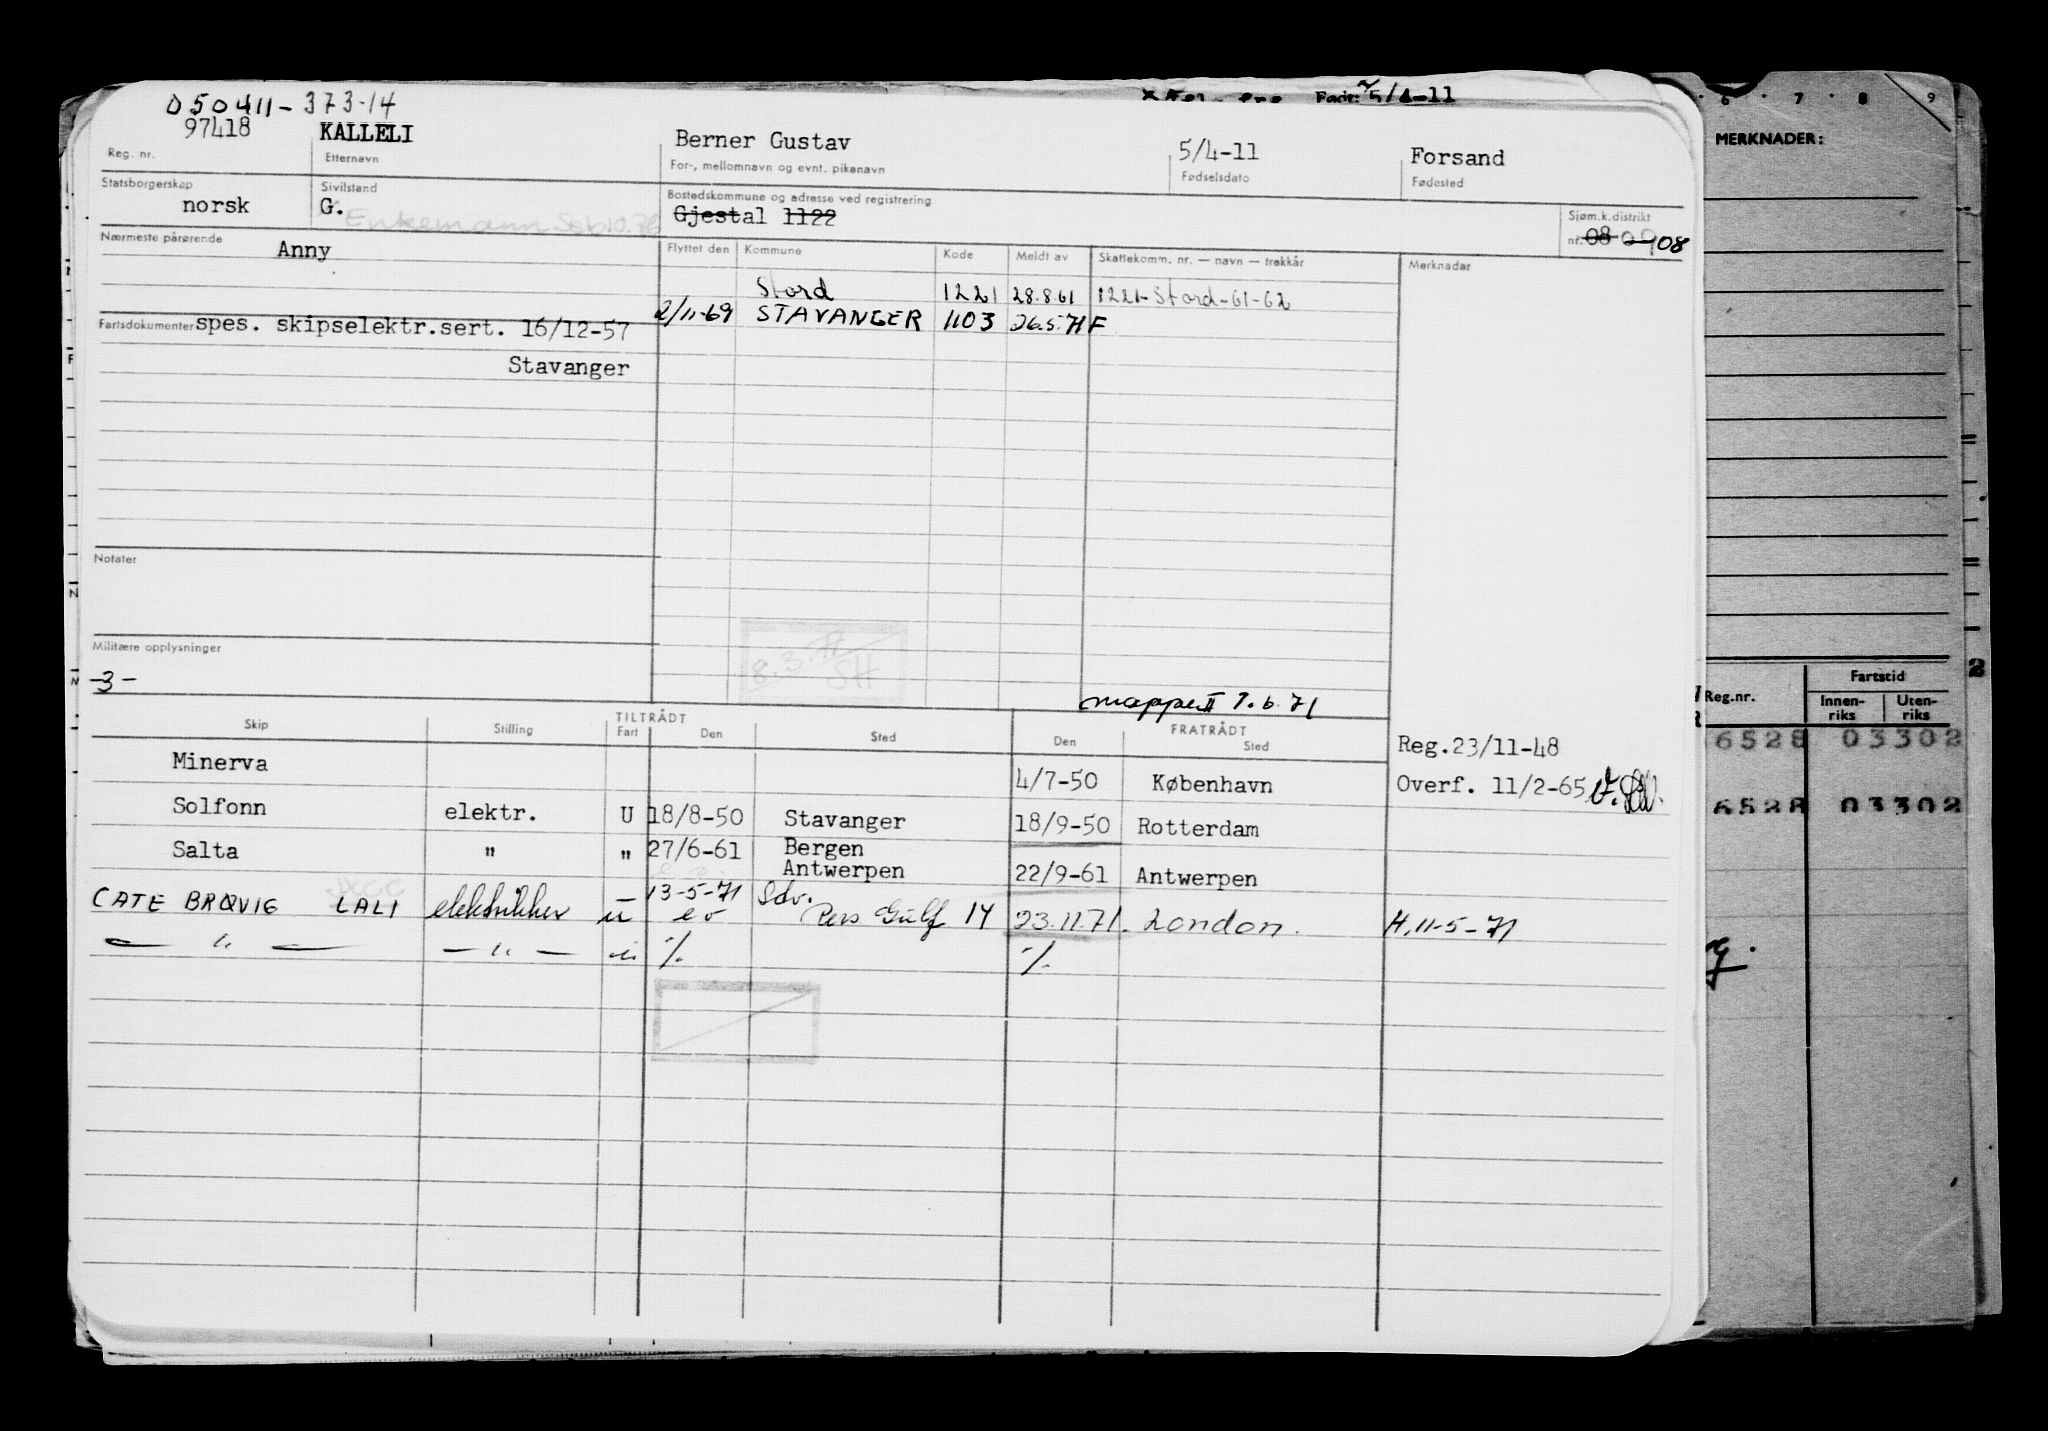 050411-373-14
97418 KALLELI Berner Gustav 5/4-11 Forsand
Reg. nr. Etternavn For-, mellomnavn og evnt. pikenavn Fødselsdato Fødested
Statsborgerskap Sivilstand Bostedskommune og adresse ved registrering Sjøm.k.distrikt
norsk G. Enkemann Gjestal 1122 nr. 08 09 08
Nærmeste pårørende Anny Flyttet den Kommune Kode Meldt av Skattekomm. nr. — navn — trekkår Merknader
Stord 1221 28.8.61 1221-Stord-61-62
2/11-69 STAVANGER 1103 26.5.71 F
Fartsdokumenter spes. skipselektr.sert. 16/12-57
Stavanger
Notater
8.3.71 SH
Militære opplysninger
-3-
1.6.71
Skip Stilling TILTRÅDT Fart Den Sted FRATRÅDT Den Sted
Reg.23/11-48
Minerva 4/7-50 København Overf. 11/2-65
Solfonn elektr. U 18/8-50 Stavanger 18/9-50 Rotterdam
Salta " " 27/6-61 Bergen
Antwerpen 22/9-61 Antwerpen
13-5-71 Sdv.
CATE BRØVIG LALI elektriker u Pers Gulf 14 23.11.71. London. H.11-5-71
— " — — " — " % %
Født: 5/4-11
6 7 8 9
MERKNADER:
2
Reg.nr. Fartstid
Innen-riks Uten-riks
6528 03302
6528 03302